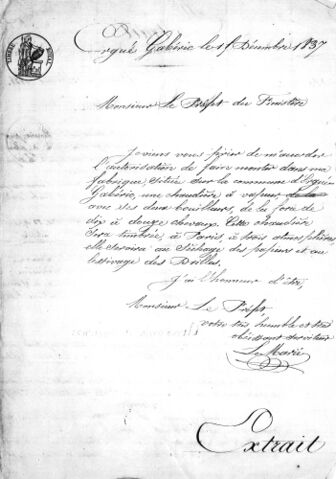 Ergué Gabéric le 15 Décembre 1837
Monsieur Le Préfet du Finistère
Je viens vous prier de m'accorder
l'autorisation de faire monter dans ma
fabrique, située sur la commune d'Ergué
Gabéric, une chaudière à vapeur
avec ses deux bouilleurs, de la force de
dix à douze chevaux. Cette chaudière
sera timbrée, à Paris, à trois atmosphères
elle servira au séchage des papiers et au
lessivage des Drilles.
J'ai l'honneur d'être,
Monsieur Le Préfet,
votre très humble et très
obéissant serviteur
Le Marié
Extrait